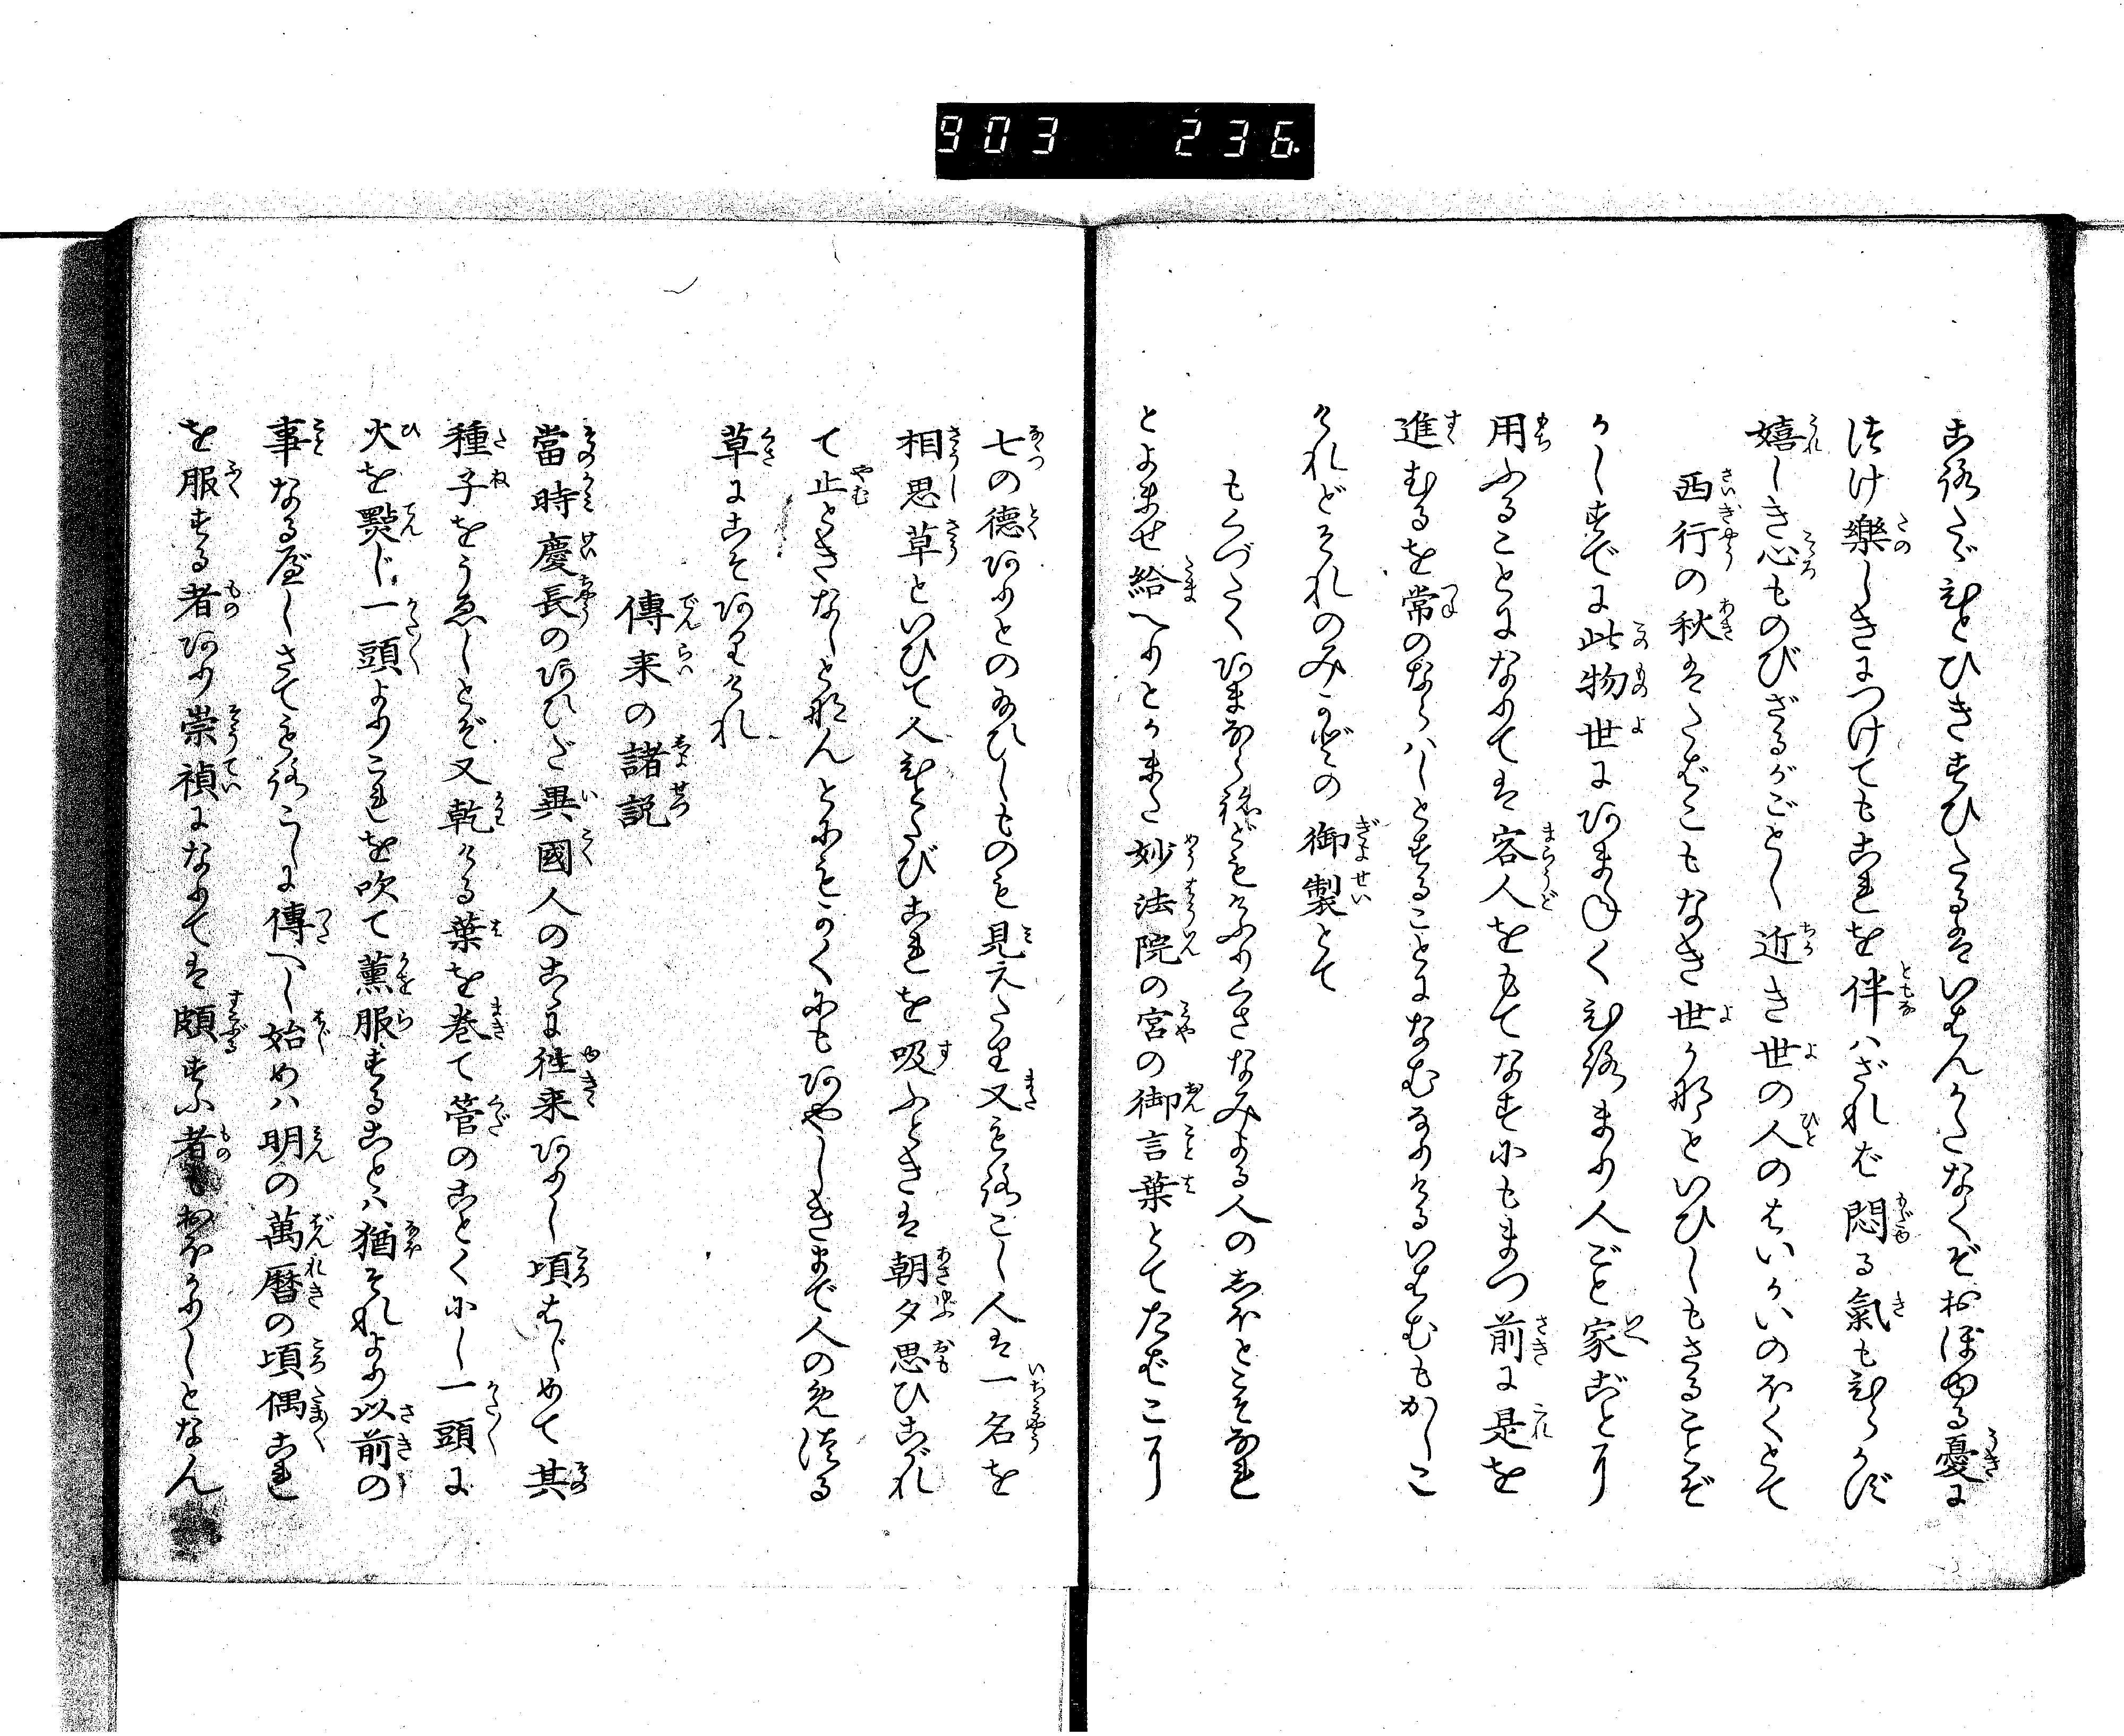 903 236
こゝろたゞよひきまひたるはいはんかたなくぞおぼゆる憂に
つけ樂しきにつけてもこれを伴ハざれば悶る氣もはらかず
嬉しき心ものびざるがごとし近き世の人のはいかいのほくとて
西行の秋はたばこもなき世かなといひしもさることぞ
かしまでに此物世にあまねくひろまり人ごと家ごとに
用ふることになりては客人をもてなすにもまつ前に是を
進むるを常のならハしとすることになむなりけるいはむもかしこ
けれどそれのみかどの御製とて
もくづたくあまならねどもけふりくさなみよる人のしほとこそなれ
とよませ給へりとかまた妙法院の宮の御言葉とてたばこに
七の德ありとのたまひしものも見えたり又もろこし人は一名を
相思草といひて人ひとたびこれを吸ふときは朝夕思ひこがれ
て止ときなしとなんとにもかくにもあやしきまで人のめづる
草にこそありけれ
傳来の諸説
當時慶長のあひだ異國人のこゝに往来ありし頃はじめて其
種子をうゑしとぞ又乾ける葉を巻て管のことくにし一頭に
火を點じ一頭よりこれを吹て薫服することハ猶それより以前の
事なるべしさてもろこしに傳へし始めハ明の萬暦の頃偶これ
を服する者あり崇禎になりては頗すふ者もおほかりしとなん